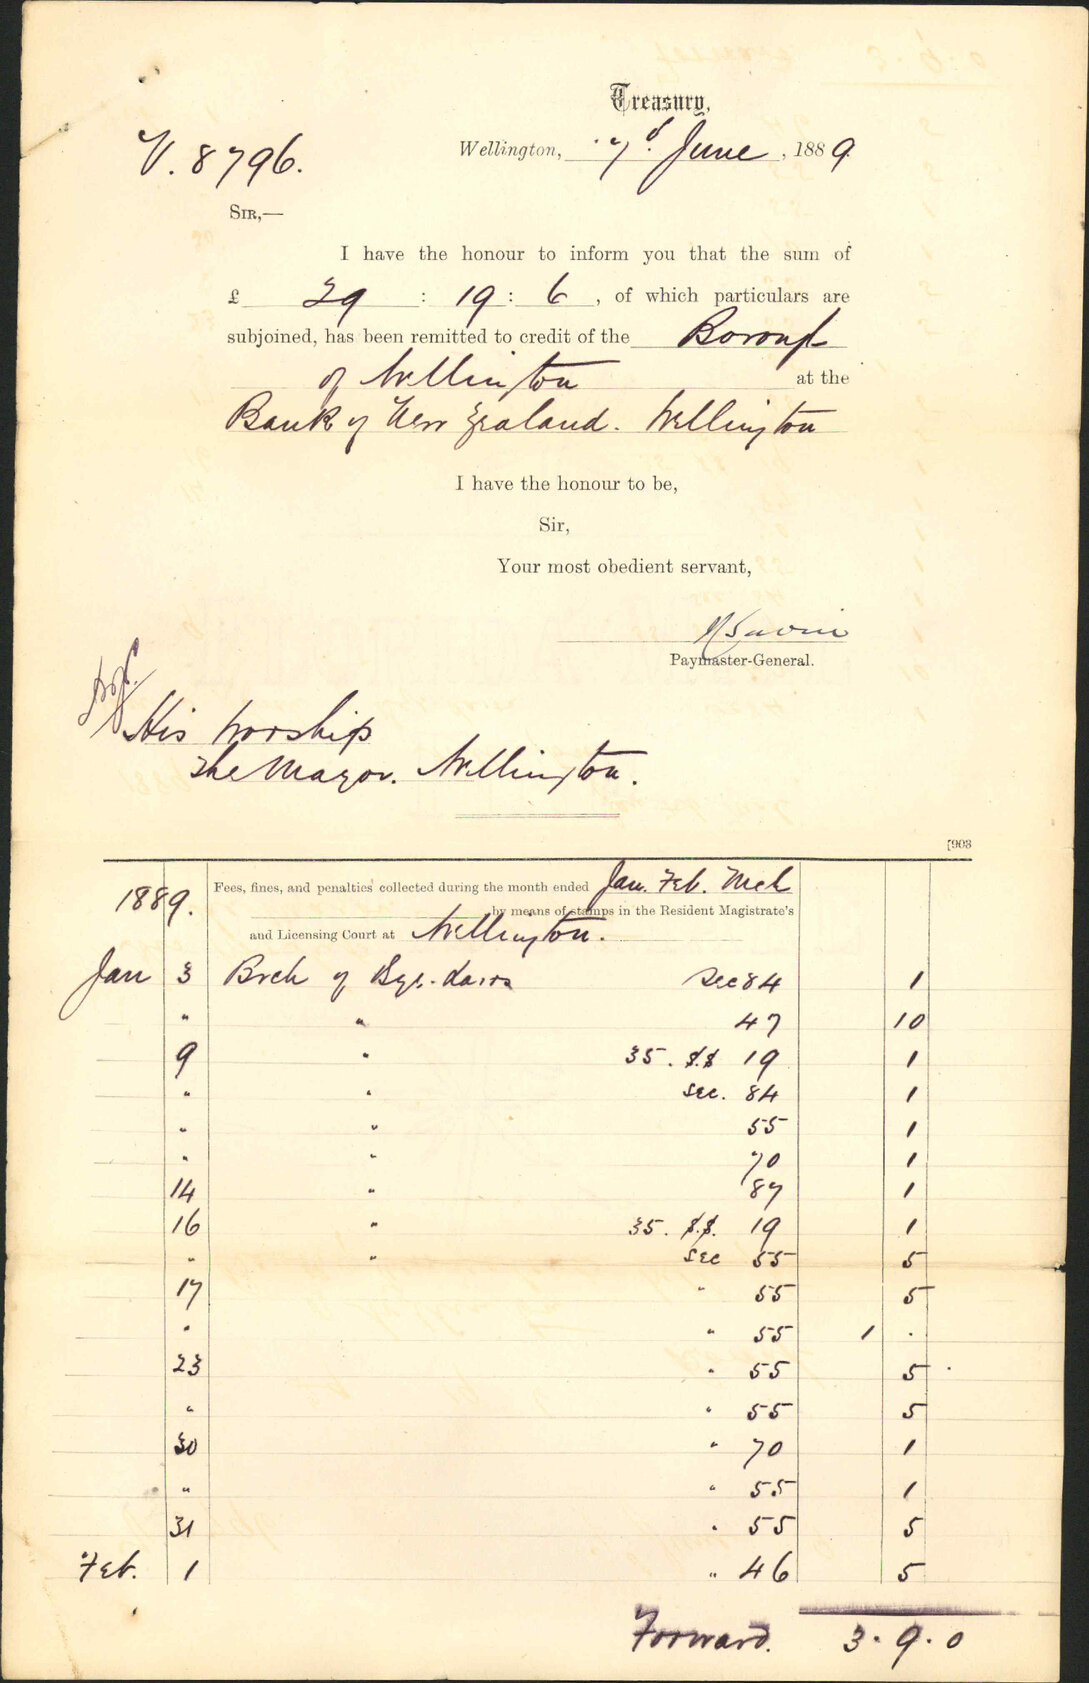 Treasury,
V. 8796.
Wellington, 7th June, 1889
SIR,—
I have the honour to inform you that the sum of
£ 29 : 19 : 6, of which particulars are
subjoined, has been remitted to credit of the Borough
of Wellington at the
Bank of New Zealand. Wellington
I have the honour to be,
Sir,
Your most obedient servant,
Paymaster-General.
His Worship
The Mayor. Wellington.
[903
1889. Fees, fines, and penalties collected during the month ended Jan. Feb. Mch
by means of stamps in the Resident Magistrate's
and Licensing Court at Wellington.
Jan 3 Brch of Bye-Laws Sec 84 1
" " 47 10
9 " 35. S.S 19 1
" " Sec. 84 1
" " 55 1
" " 70 1
14 " 87 1
16 " 35. S.S. 19 1
" " Sec 55 5
17 " 55 5
" " 55 1 .
23 " 55 5
" " 55 5
30 " 70 1
" " 55 1
31 " 55 5
Feb. 1 " 46 5
Forward. 3. 9. 0